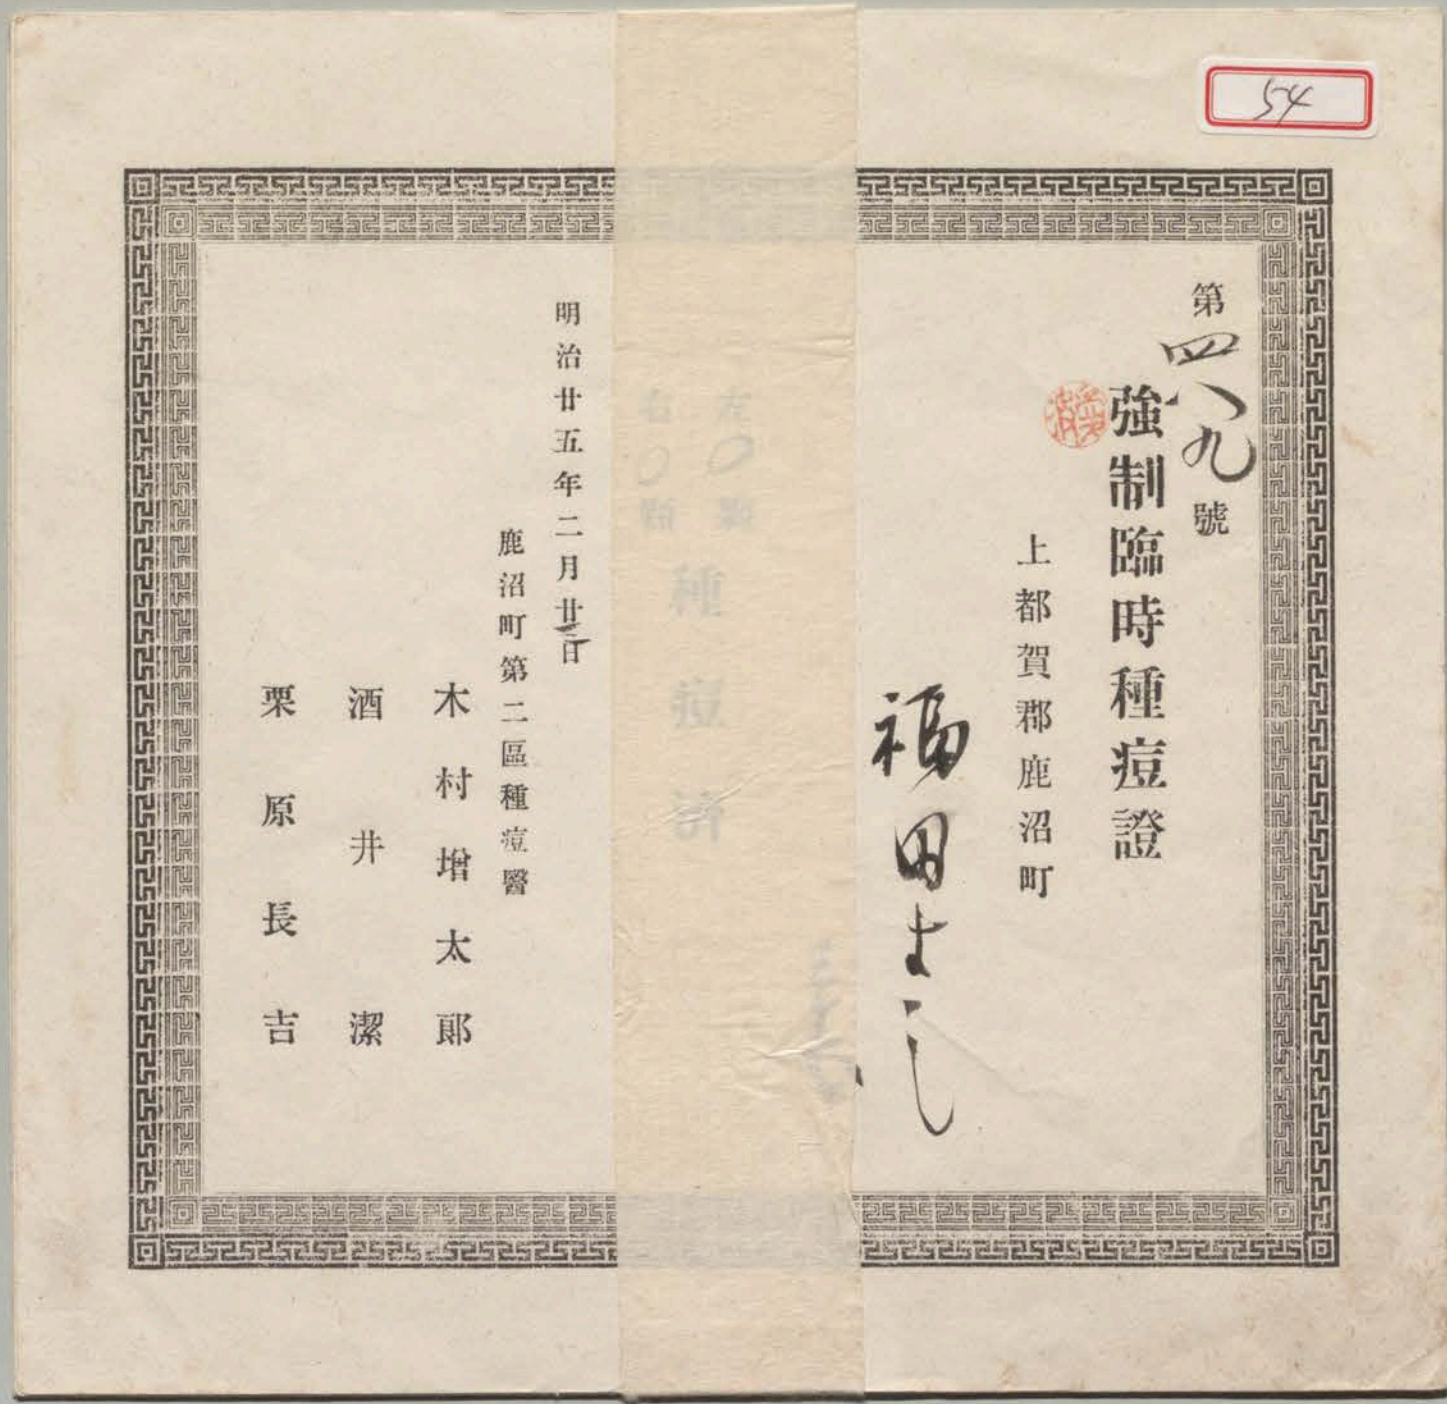 54
第四八九號
強制臨時種痘證
上都賀郡鹿沼町
福田
左〇顆
右〇顆
種痘済
明治廿五年二月廿三日
鹿沼町第二區種痘醫
木村増太郎
酒井潔
栗原長吉